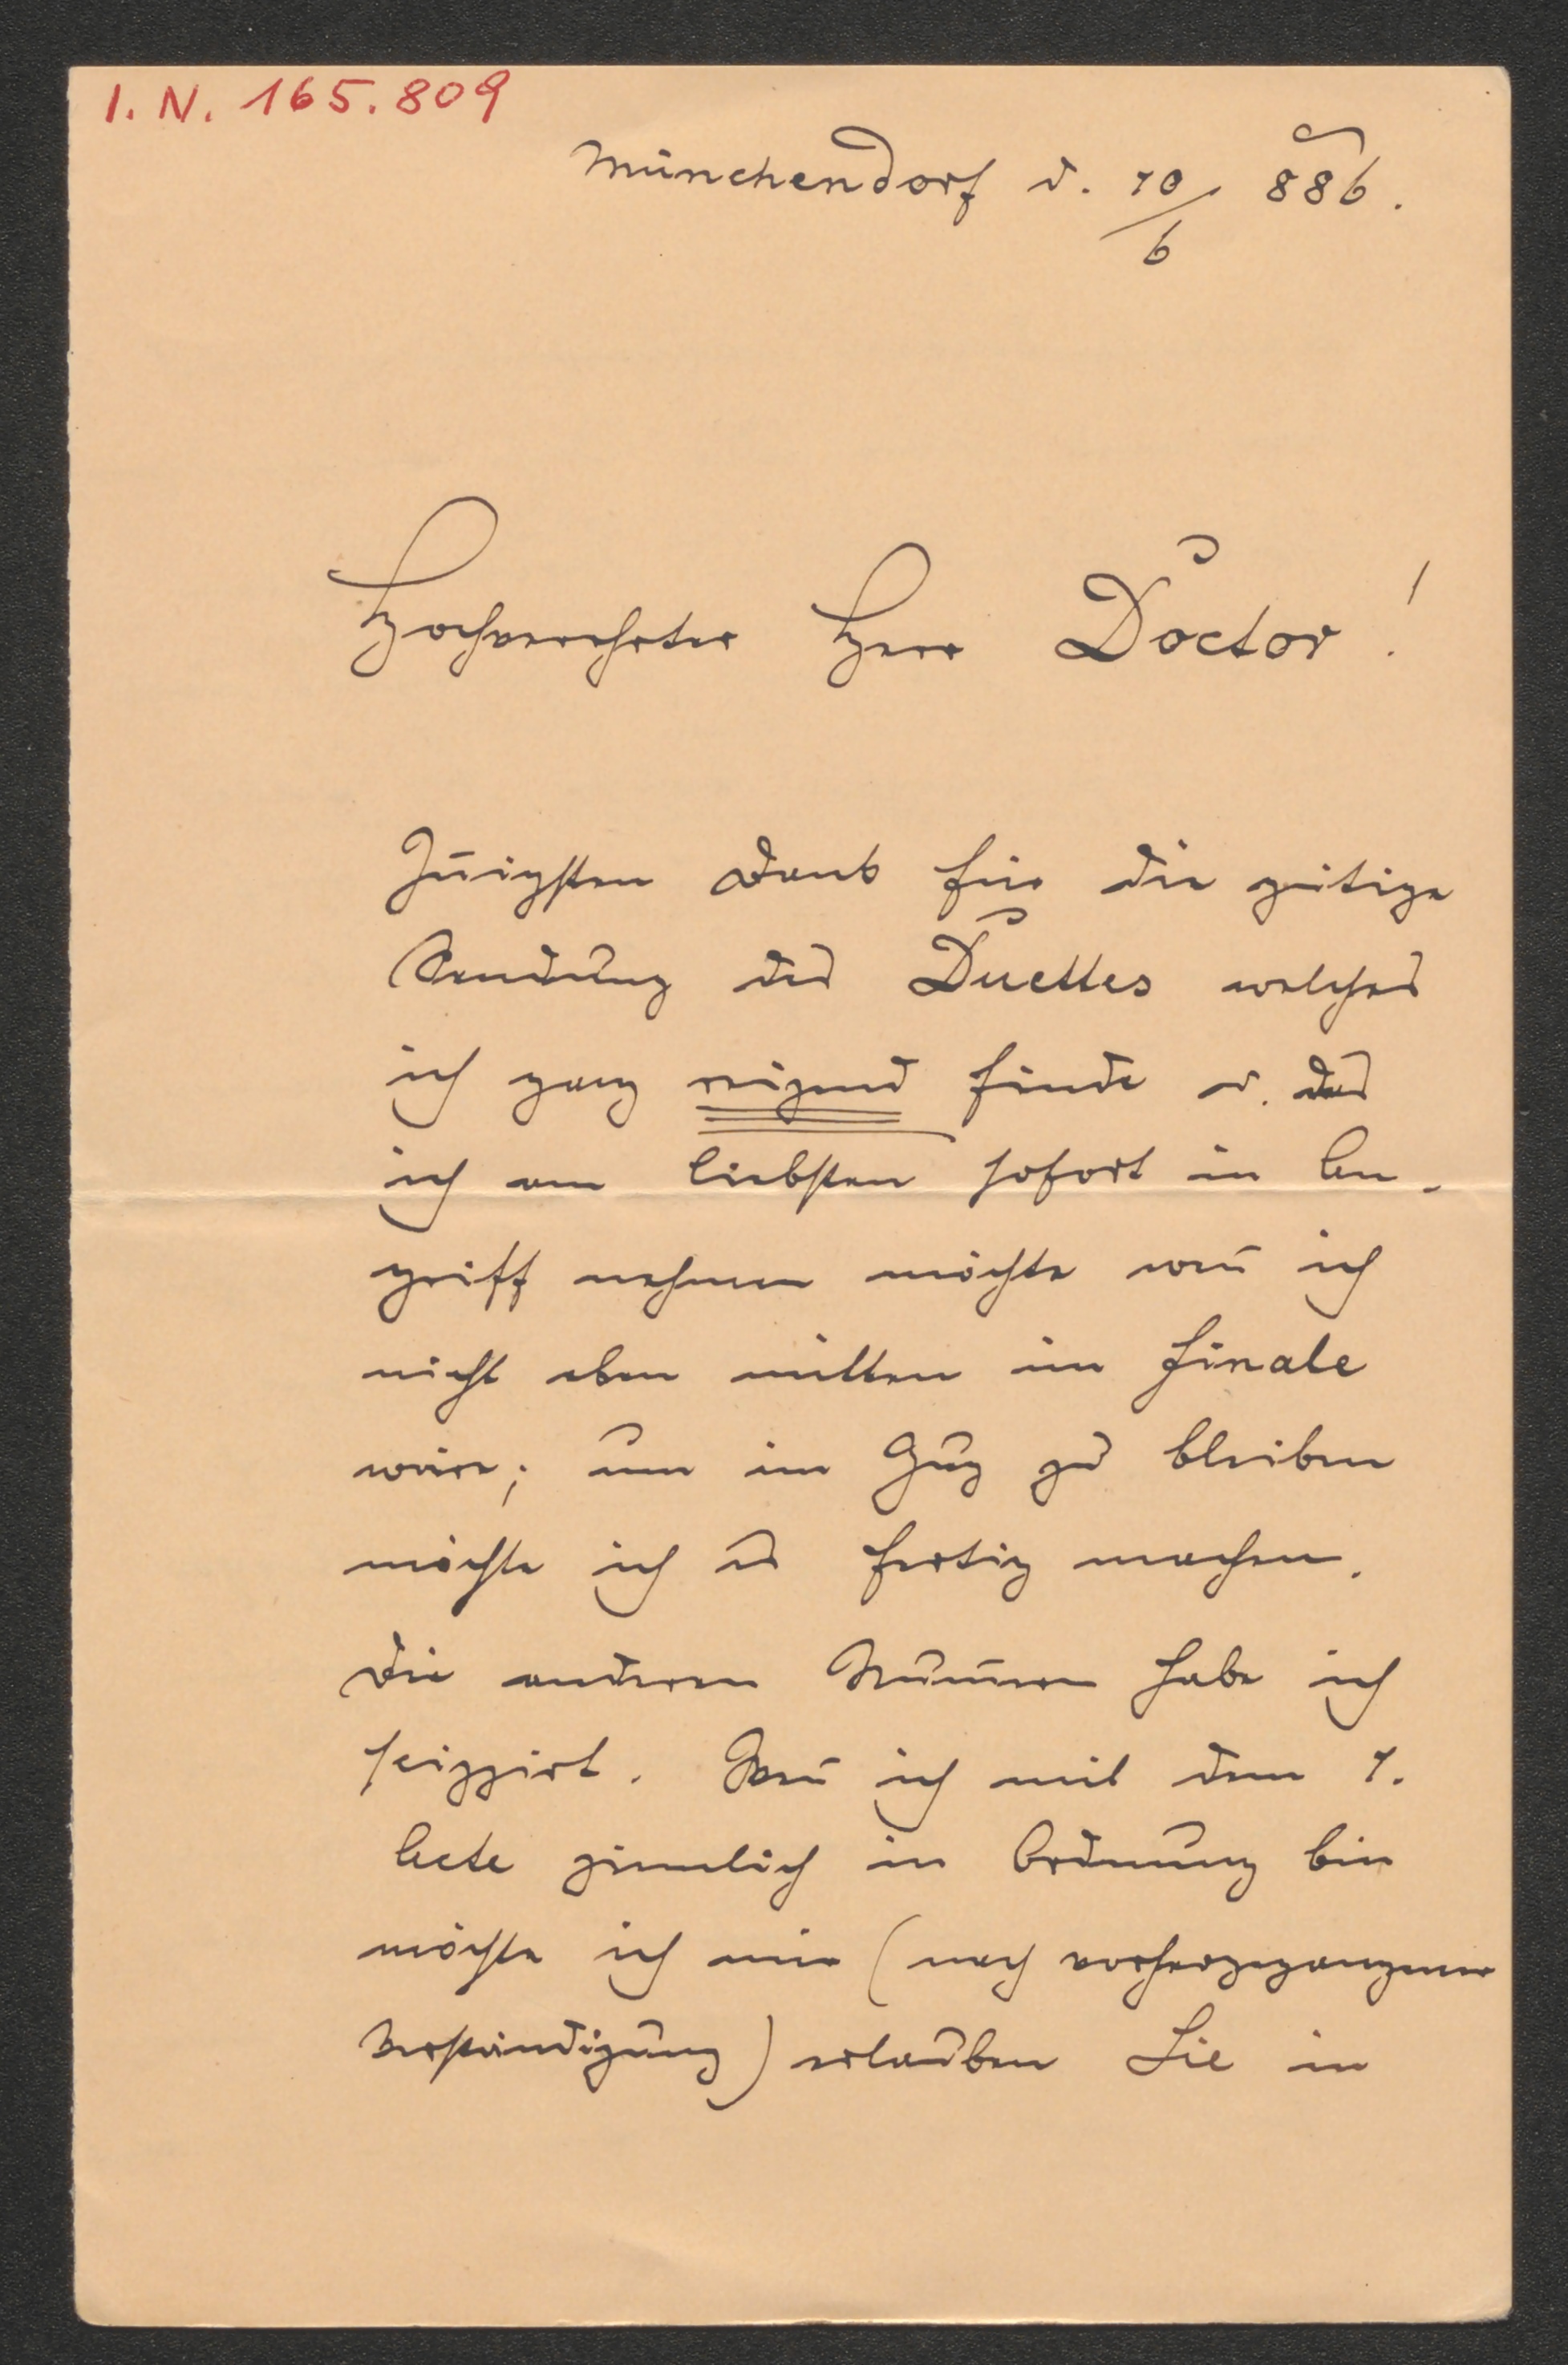 I. N. 165.809
Münchendorf d. 10/6 886.
Hochverehrter Herr Doctor!
Im̄igsten Dank für die gütige
Sendung des Duettes welches
ich ganz reizend finde u. das
ich am liebsten sofort in An-
griff nehmen möchte wen̄ ich
nicht eben mitten im Finale
wäre; um im Zug zu bleiben
möchte ich es fertig machen.
Die anderen Num̄ern habe ich
scizzirt. Wen̄ ich mit dem 1.
Acte ziemlich in Ordnung bin
möchte ich mir (nach vorhergegangener
Verständigung) erlauben Sie in